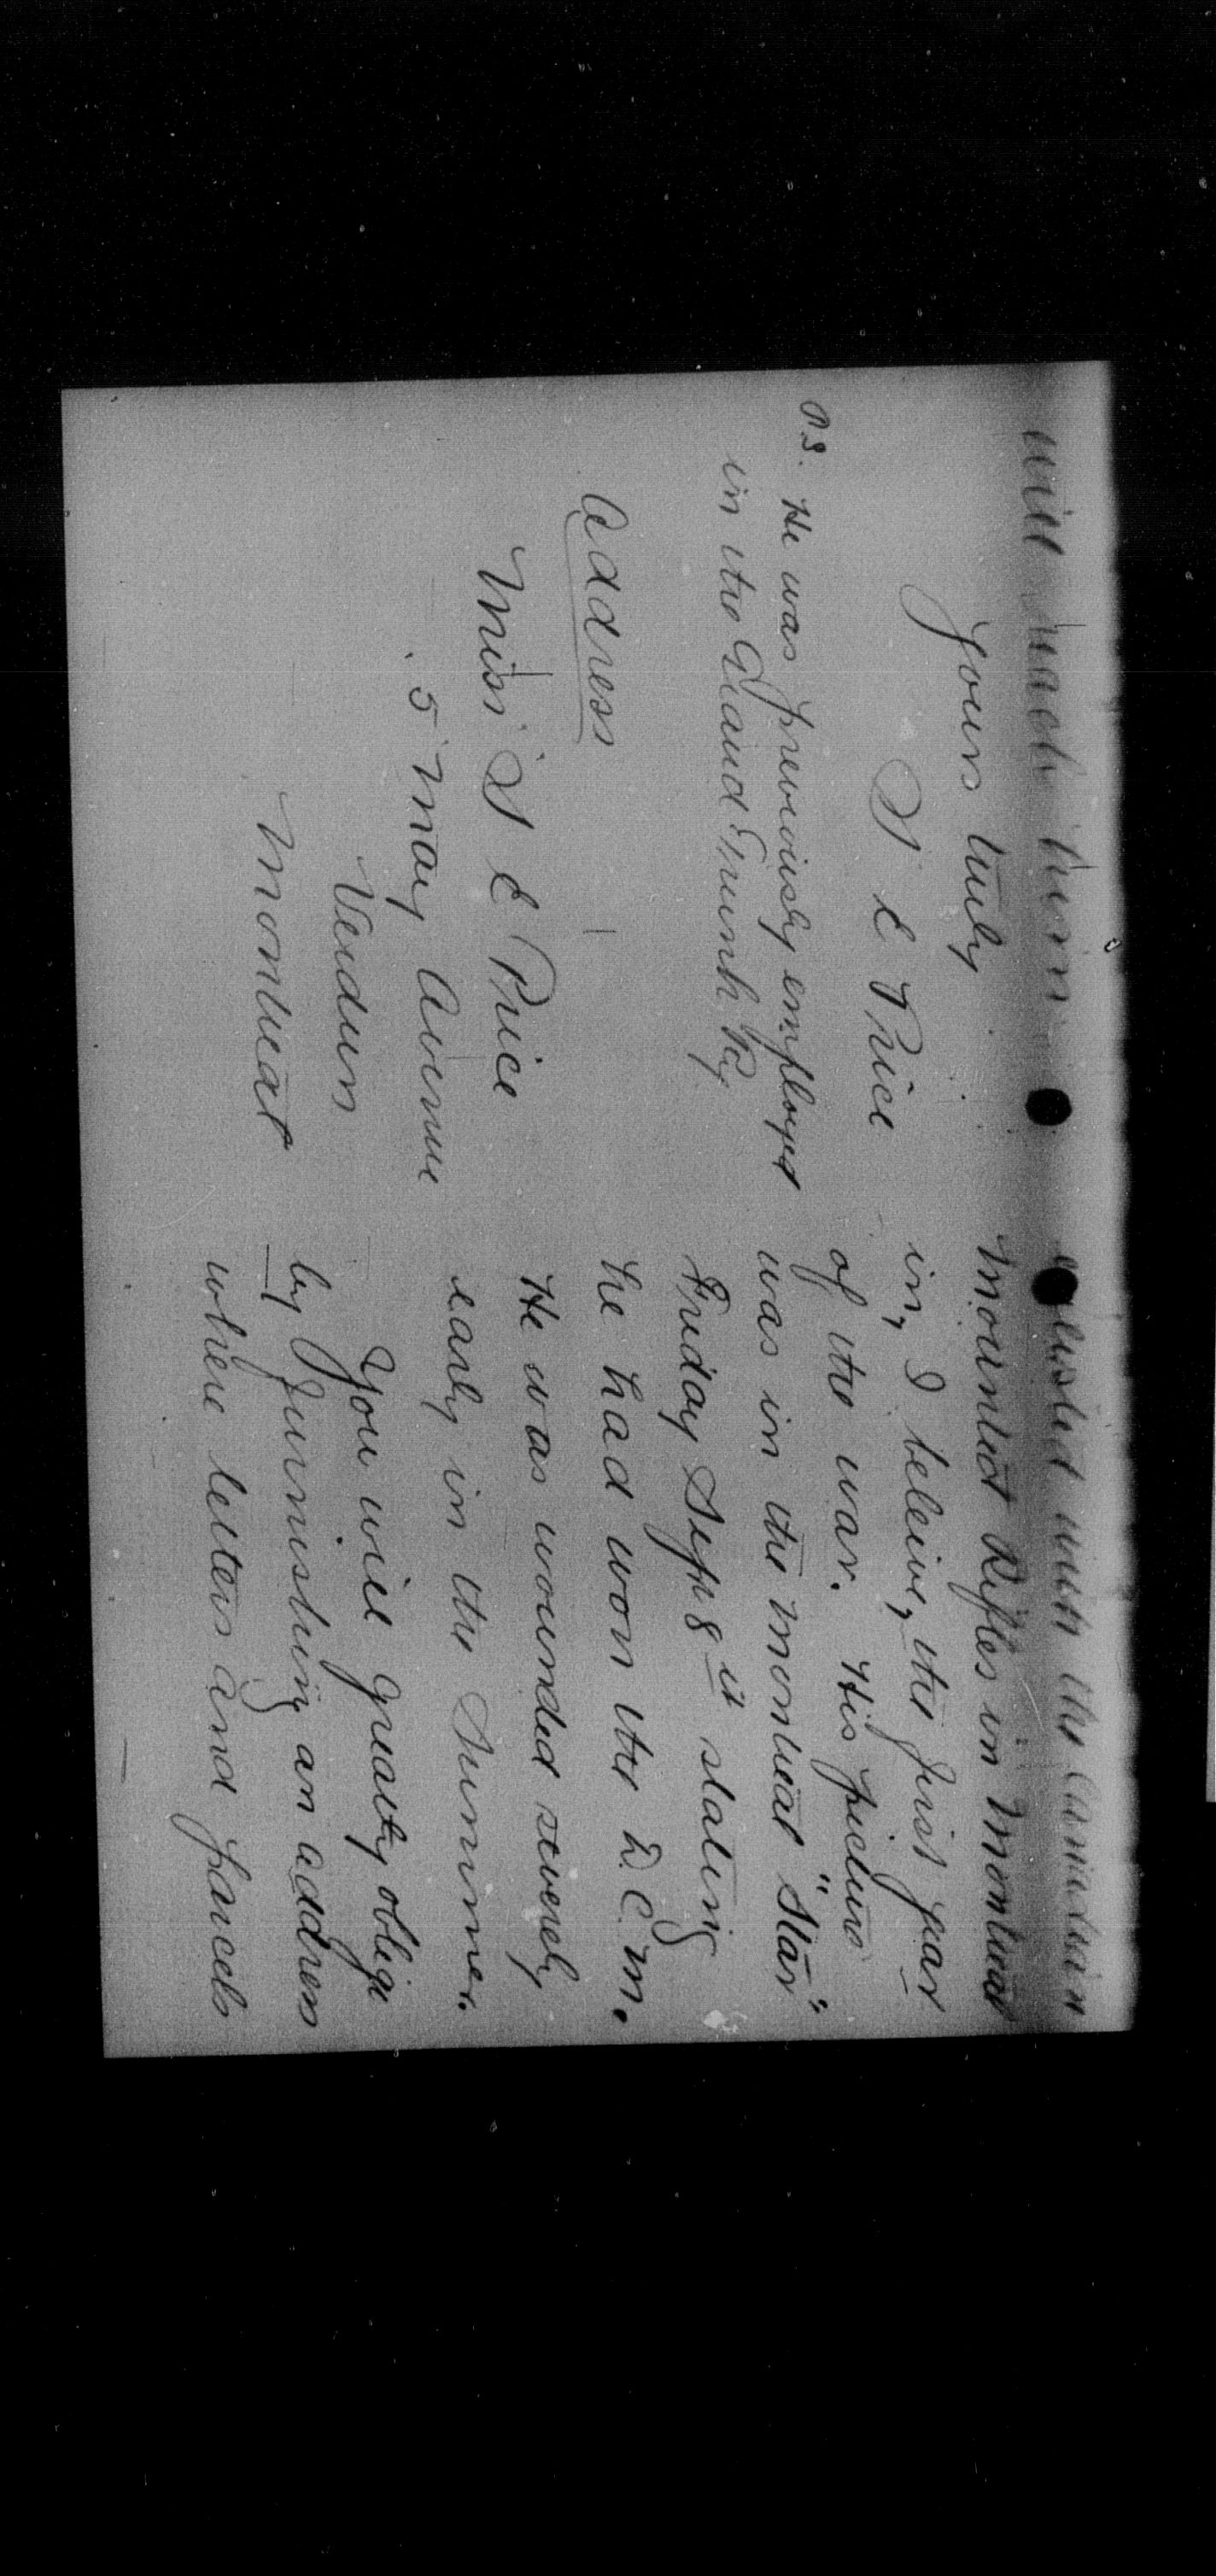 enlisted with the Canadian
Mounted Rifles in Montreal
in, I beleive, the first year
of the war. His picture
was in the Montreal "Star"
Friday Sept 8th stating
he had won the D.C.M.
He was wounded severely
early in the summer.
You will greatly oblige
by furnishing an address
where letters and parcels
will reach him
Yours truly
S E Price
P.S. He was previously employed
in the Grand Trunk Ry
Address
Miss S E Price
5 May Avenue
Verdun
Montreal